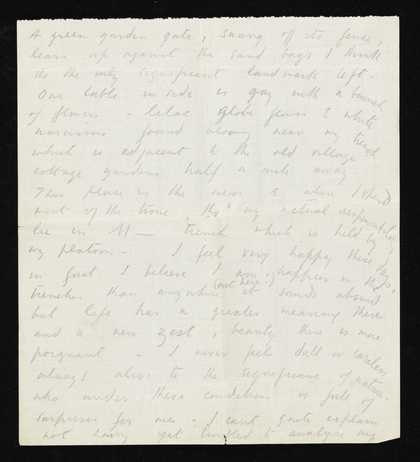 A green garden gate, swung off its fence,
leans up against the sand bags I think
its the only significant landmark left -
Our table inside is gay with a bunch
of flowers - lilac globe flowers & white
narcissus found along near my trench
which is adjacent to the old village
cottage gardens half a mile away
This place is the mess & where I spend
most of the time - tho' my actual
lie in M — trench which is held by
my platoon - I feel very happy these days,
in fact I believe I am happier in the
trenches than anywhere (out here) it sounds absurd
but life has a greater meaning there
and a new zest, & beauty there is more
poignant - I never feel dull or careless
always alive to the significance of nature
who under these conditions is full of
surprises for me - I can't quite explain
not having yet troubled to analyse my